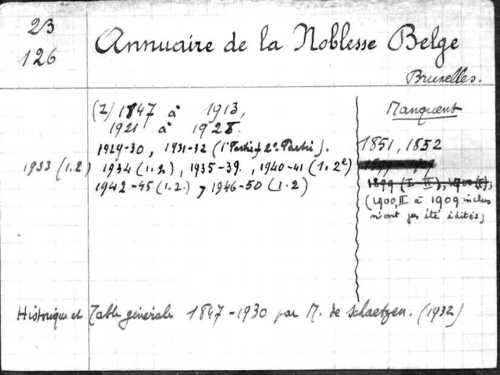 23
126
Annuaire de la Noblesse Belge
Bruxelles.
(I) 1847 à 1913,
1921 à 1928.
1929-30, 1931-32 (1e Partie & 2e Partie).
1933 (1.2) 1934 (1.2), 1935-39, 1940-41 (1.2e)
1942-45 (1.2) y 1946-50 (1.2)
Manquent
1851, 1852
1899 (I-II), 1900 (I),
(1900, II à 1909 inclus
n'ont pas été édités)
Historique et Table générale 1847-1930 par M. de Schaetzen. (1932)